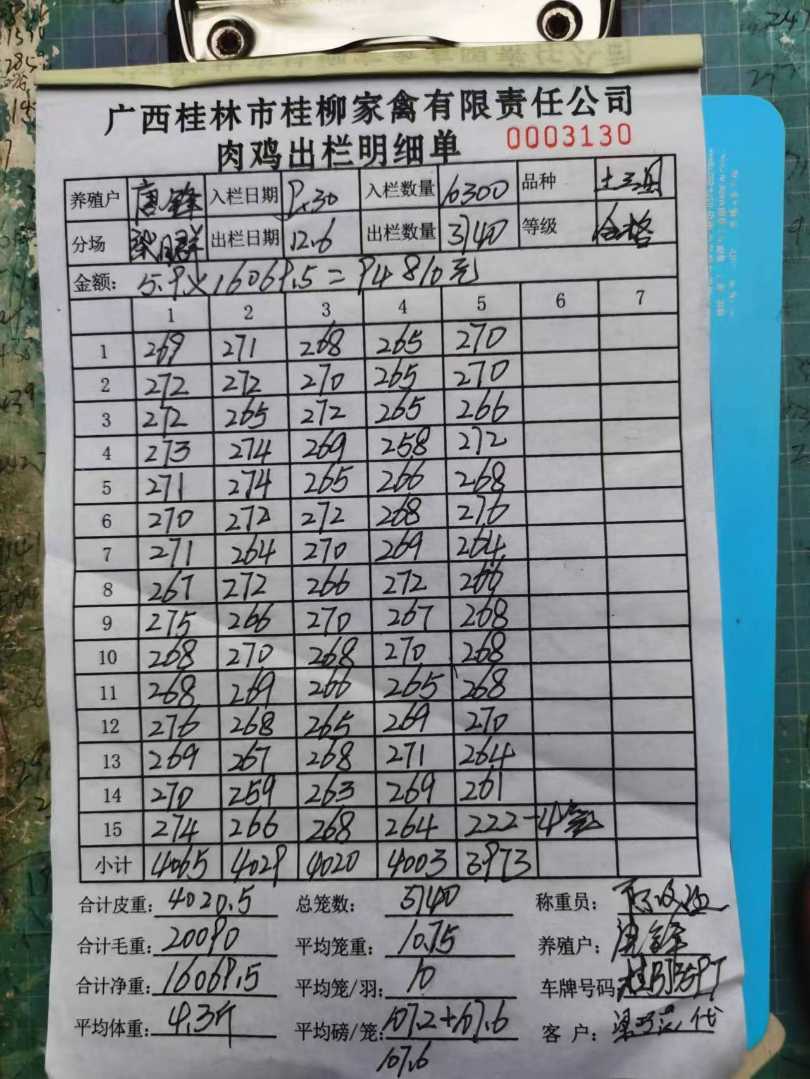 广西桂林市桂柳家禽有限责任公司
肉鸡出栏明细单 0003130
养殖户 唐锋 入栏日期 9.30 入栏数量 10300 品种
分场 出栏日期 12.6 出栏数量 3740 等级 合格
金额: 5.9×16069.5=94810元
1 2 3 4 5 6 7
1 269 271 268 265 270
2 272 272 270 265 270
3 272 265 272 265 266
4 273 274 269 258 272
5 271 274 265 266 268
6 270 272 272 268 276
7 271 264 270 269 264
8 267 272 266 272 266
9 275 266 270 267 268
10 268 270 268 270 268
11 268 269 266 265 268
12 276 268 265 269 270
13 269 267 268 271 264
14 270 259 263 269 261
15 274 266 268 264 222-4
小计 4065 4029 4020 4003 3973
合计皮重: 4020.5 总笼数: 3740 称重员:
合计毛重: 20090 平均笼重: 10.75 养殖户:
合计净重: 16069.5 平均笼/羽: 10 车牌号码:
平均体重: 4.3斤 平均磅/笼: 107.2+107.6 客户:
107.6